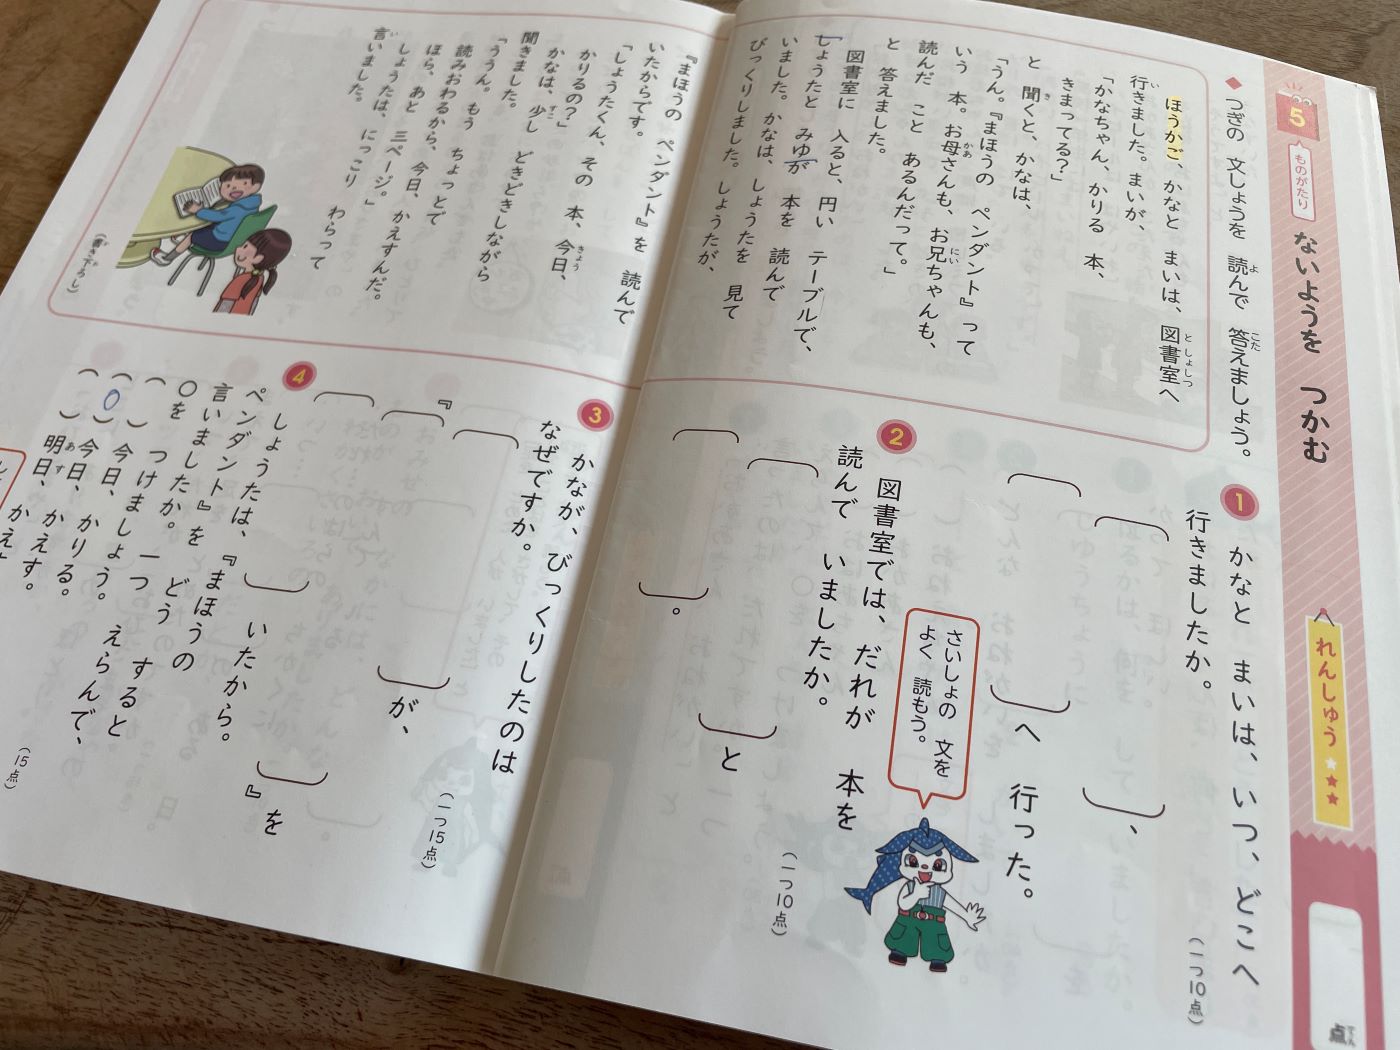 5
ものがたり
ないようを つかむ
れんしゅう
点
◆つぎの 文しょうを 読んで 答えましょう。
ほうかご、かなと まいは、図書室へ
行きました。まいが、
「かなちゃん、かりる 本、
きまってる?」
と 聞くと、かなは、
「うん。『まほうの ペンダント』って
いう 本。お母さんも、お兄ちゃんも、
読んだ こと あるんだって。」
と 答えました。
図書室に 入ると、円い テーブルで、
しょうたと みゆが 本を 読んで
いました。かなは、しょうたを 見て
びっくりしました。しょうたが、
『まほうの ペンダント』を 読んで
いたからです。
「しょうたくん、その 本、今日、
かりるの?」
かなは、少し どきどきしながら
聞きました。
「ううん。もう ちょっとで
読みおわるから、今日、かえすんだ。
ほら、あと 三ページ。」
しょうたは、にっこり わらって
言いました。
(書き下ろし)
1
かなと まいは、いつ、どこへ
行きましたか。
(一つ10点)
( )、
( )へ 行った。
さいしょの 文を
よく 読もう。
2
図書室では、だれが 本を
読んで いましたか。
(一つ10点)
( )と
( )。
3
かなが、びっくりしたのは
なぜですか。
(一つ15点)
( )が、
『( )』を
( )いたから。
4
しょうたは、『まほうの
ペンダント』を どうすると
言いましたか。一つ えらんで、
○を つけましょう。
(15点)
( )今日、かりる。
(○)今日、かえす。
( )明日、かえす。